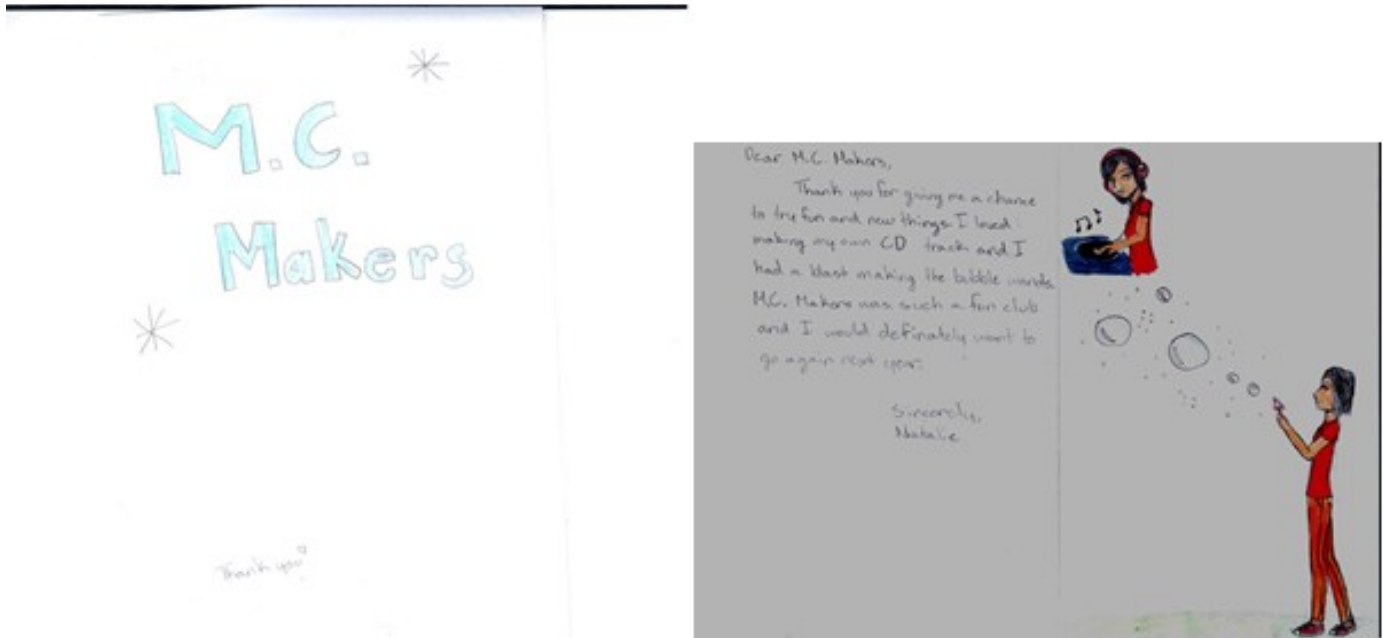 M.C.
Makers
Thank you
Dear M.C. Makers,
Thank you for giving me a chance
to try fun and new things. I loved
making my own CD track and I
had a blast making the bubble wands.
M.C. Makers was such a fun club
and I would definately want to
go again next year.
Sincerely,
Natalie